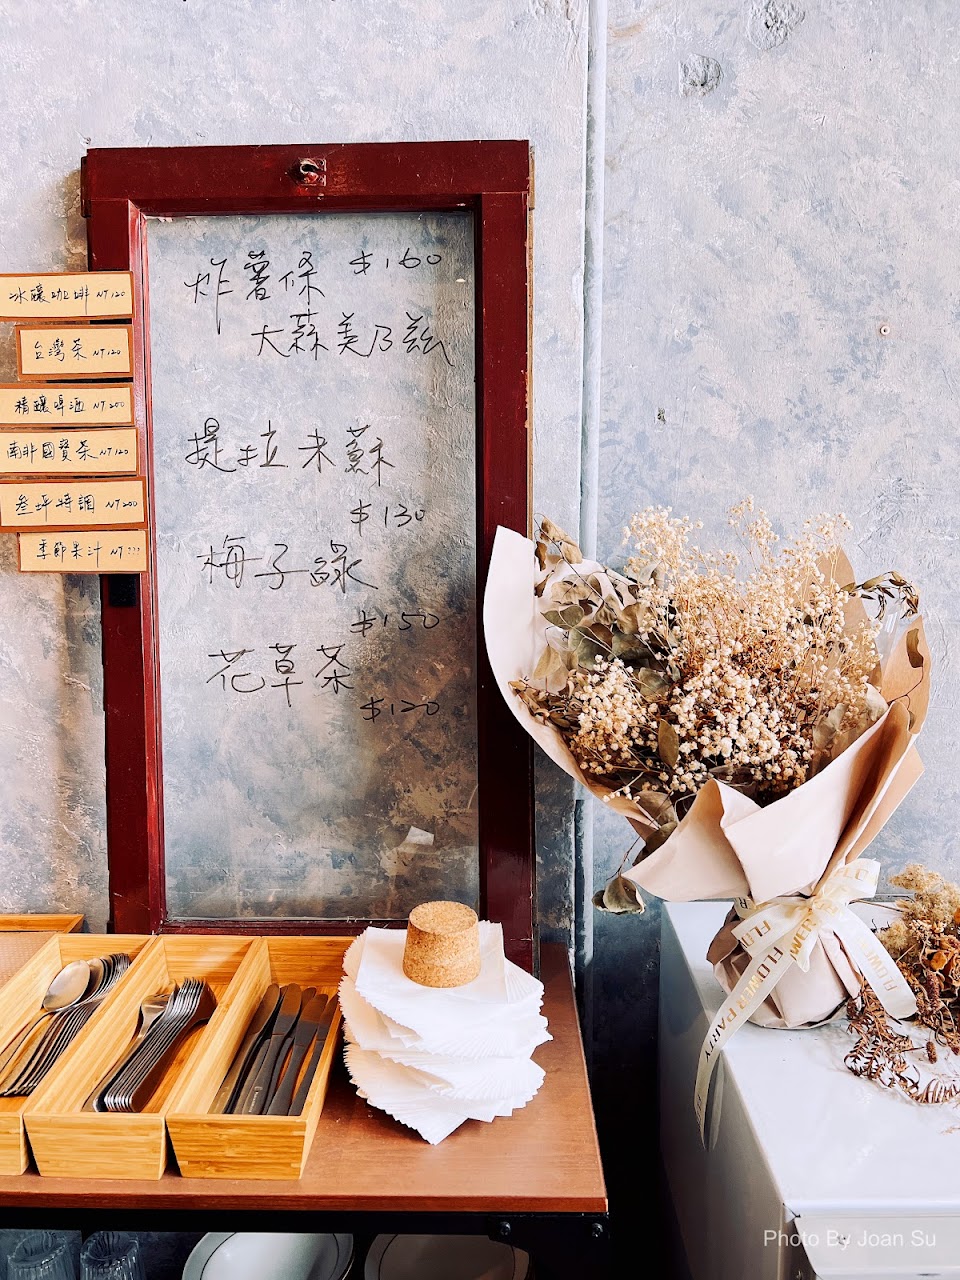 炸薯條 $160
大蒜美乃滋
提拉米蘇
$130
梅子綠
$150
花草茶
$120
冰釀咖啡 NT120
台灣茶 NT120
精釀啤酒 NT200
南非國寶茶 NT120
叁坪特調 NT200
季節果汁 NT???
FLOWER PARTY
FLOWE
Photo By Joan Su